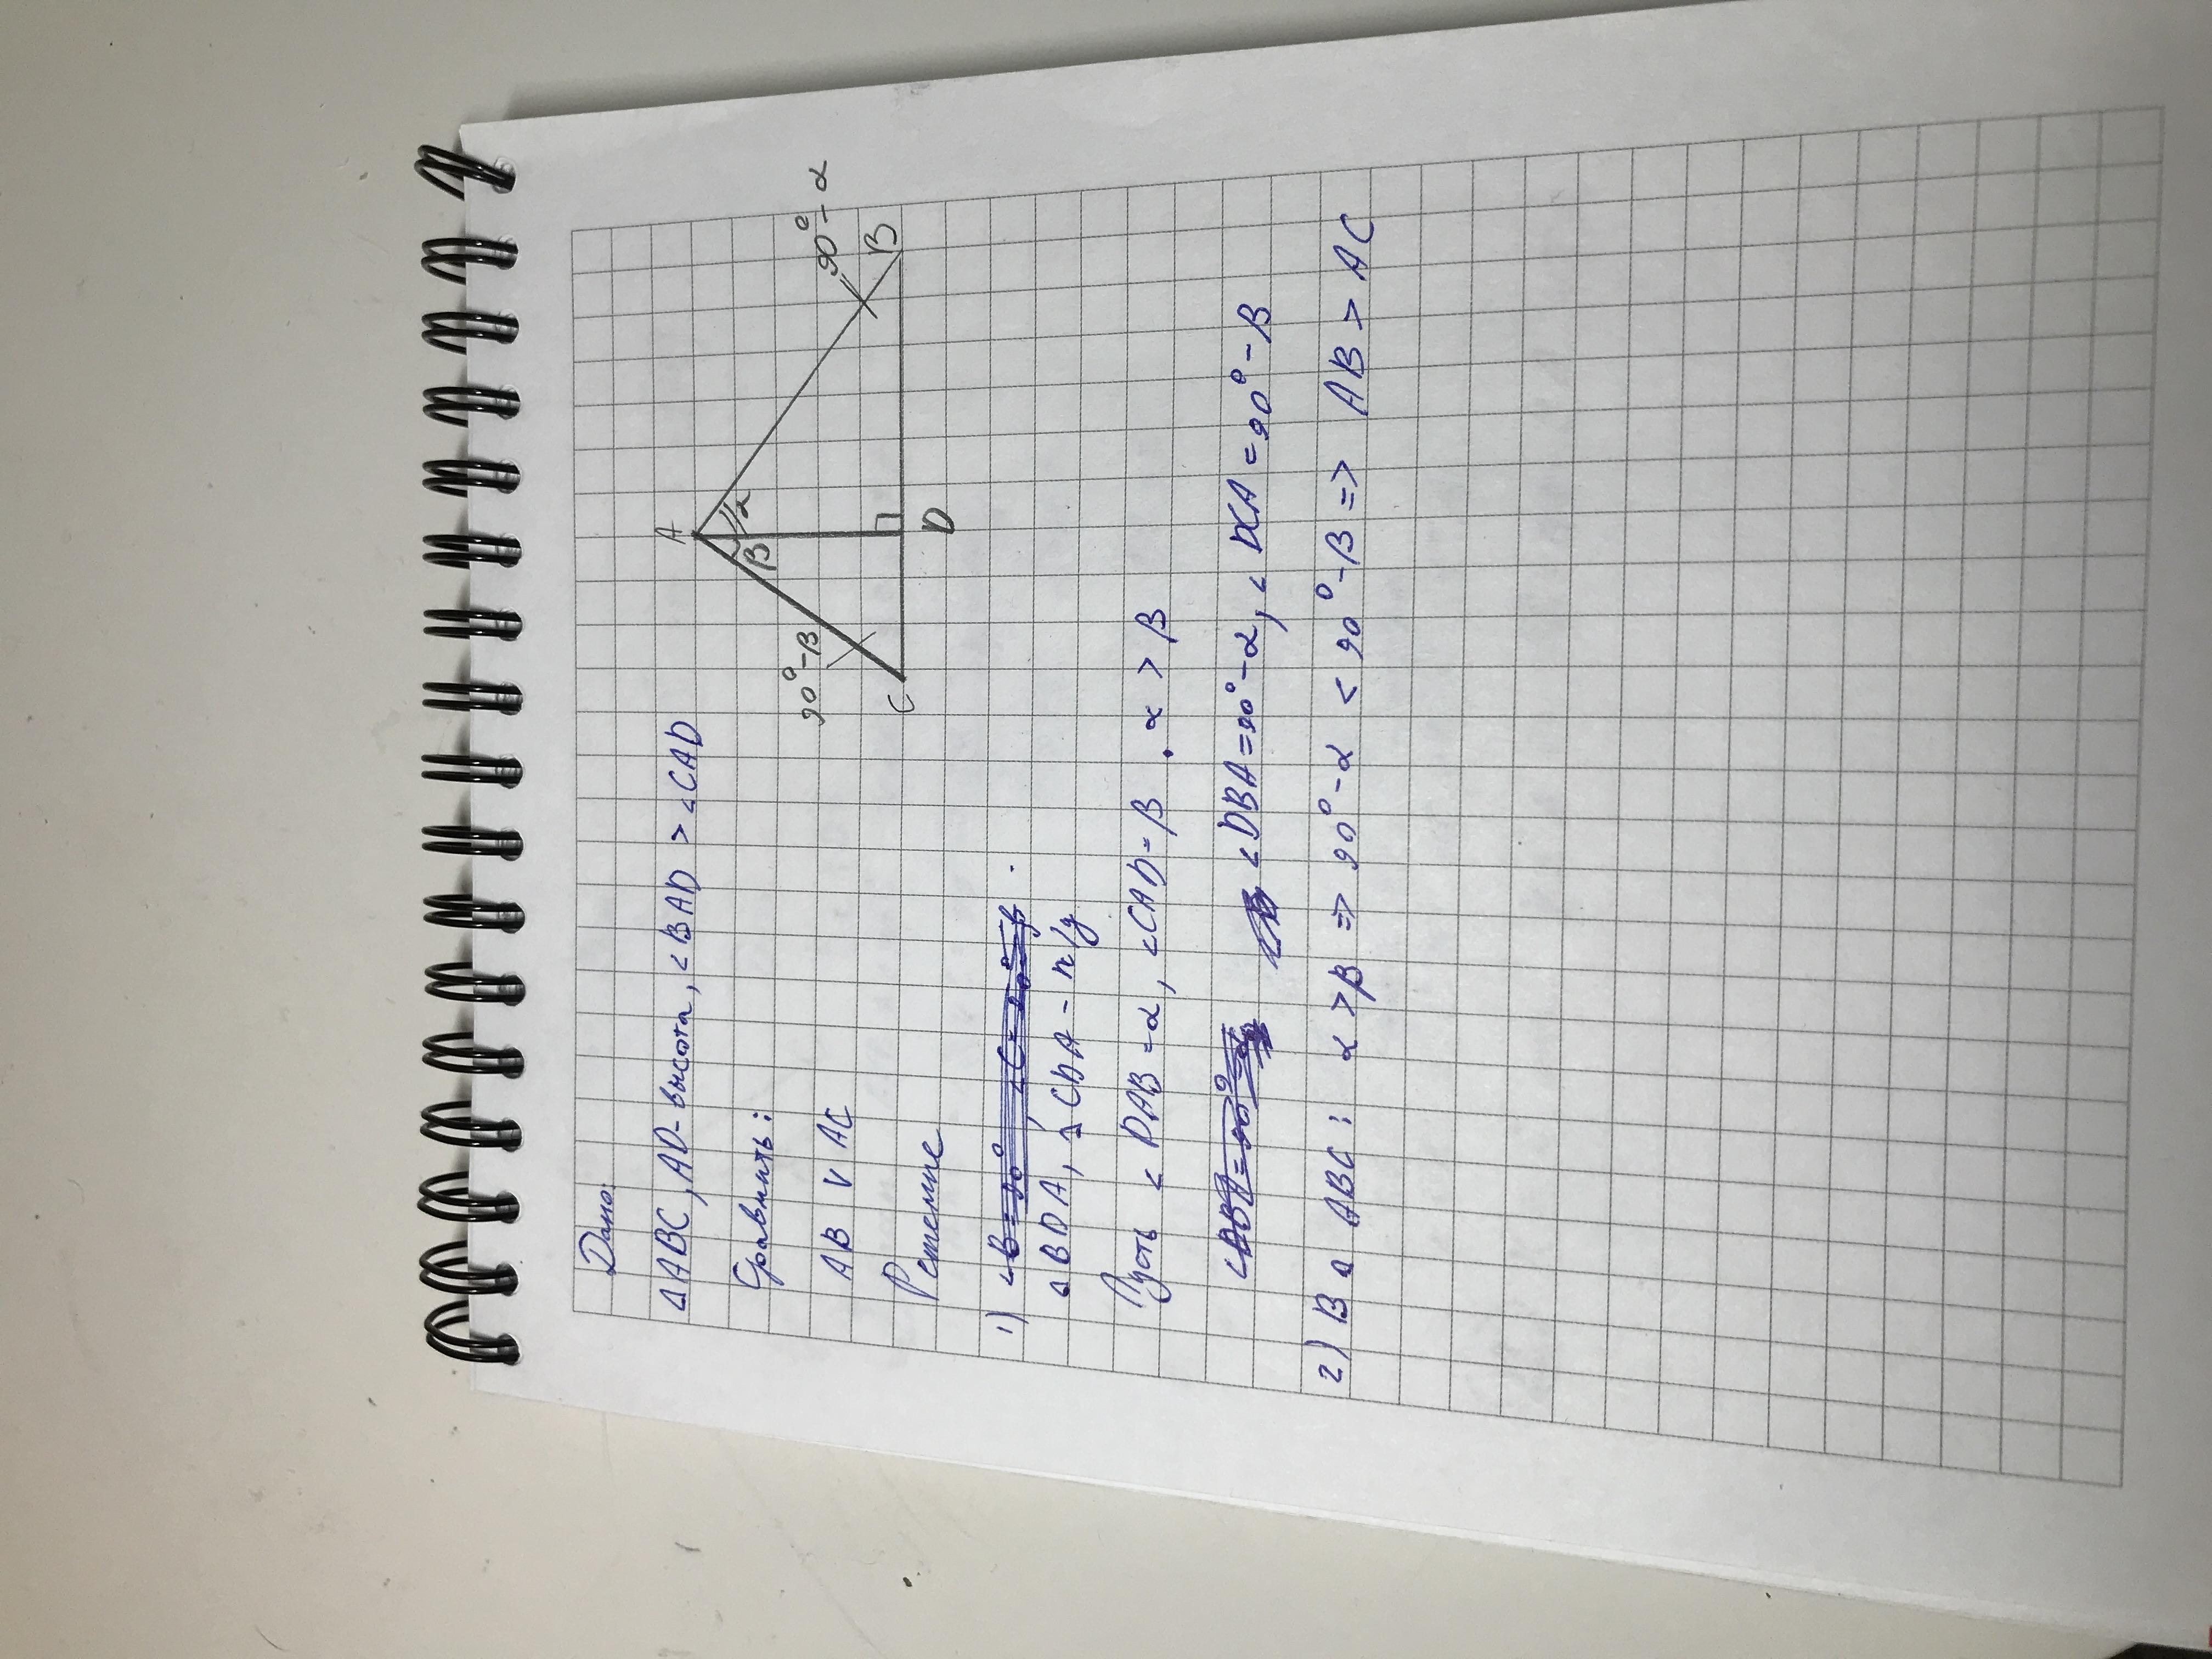 Дано:
Δ ABC, AD - высота, ∠ BAD > ∠CAD
Сравнить:
AB V AC
Решение
1)
Δ BDA, Δ CDA - п/у
Пусть ∠ DAB = α, ∠CAD = β. α > β
∠DBA = 90° - α, ∠ DCA = 90° - β
2) В Δ ABC: α > β => 90° - α < 90° - β => AB > AC
A
β
α
90° - β
90° - α
C
D
B